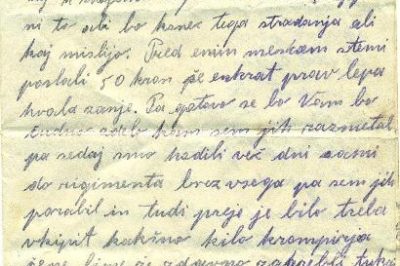 ni to ali bo konec tega stradanja ali
kaj mislijo. Pred enim mescam ste mi
poslali 50 kron še enkrat prav lepa
hvala zanje. Pa gotovo se bo Vam bo
čudno zdelo kam sem jih razmetal
pa sedaj smo hodili več dni sami
do regimenta brez vsega pa sem jih
porabil in tudi prejo je bilo treba
vkipit kakšno kilo krompirja